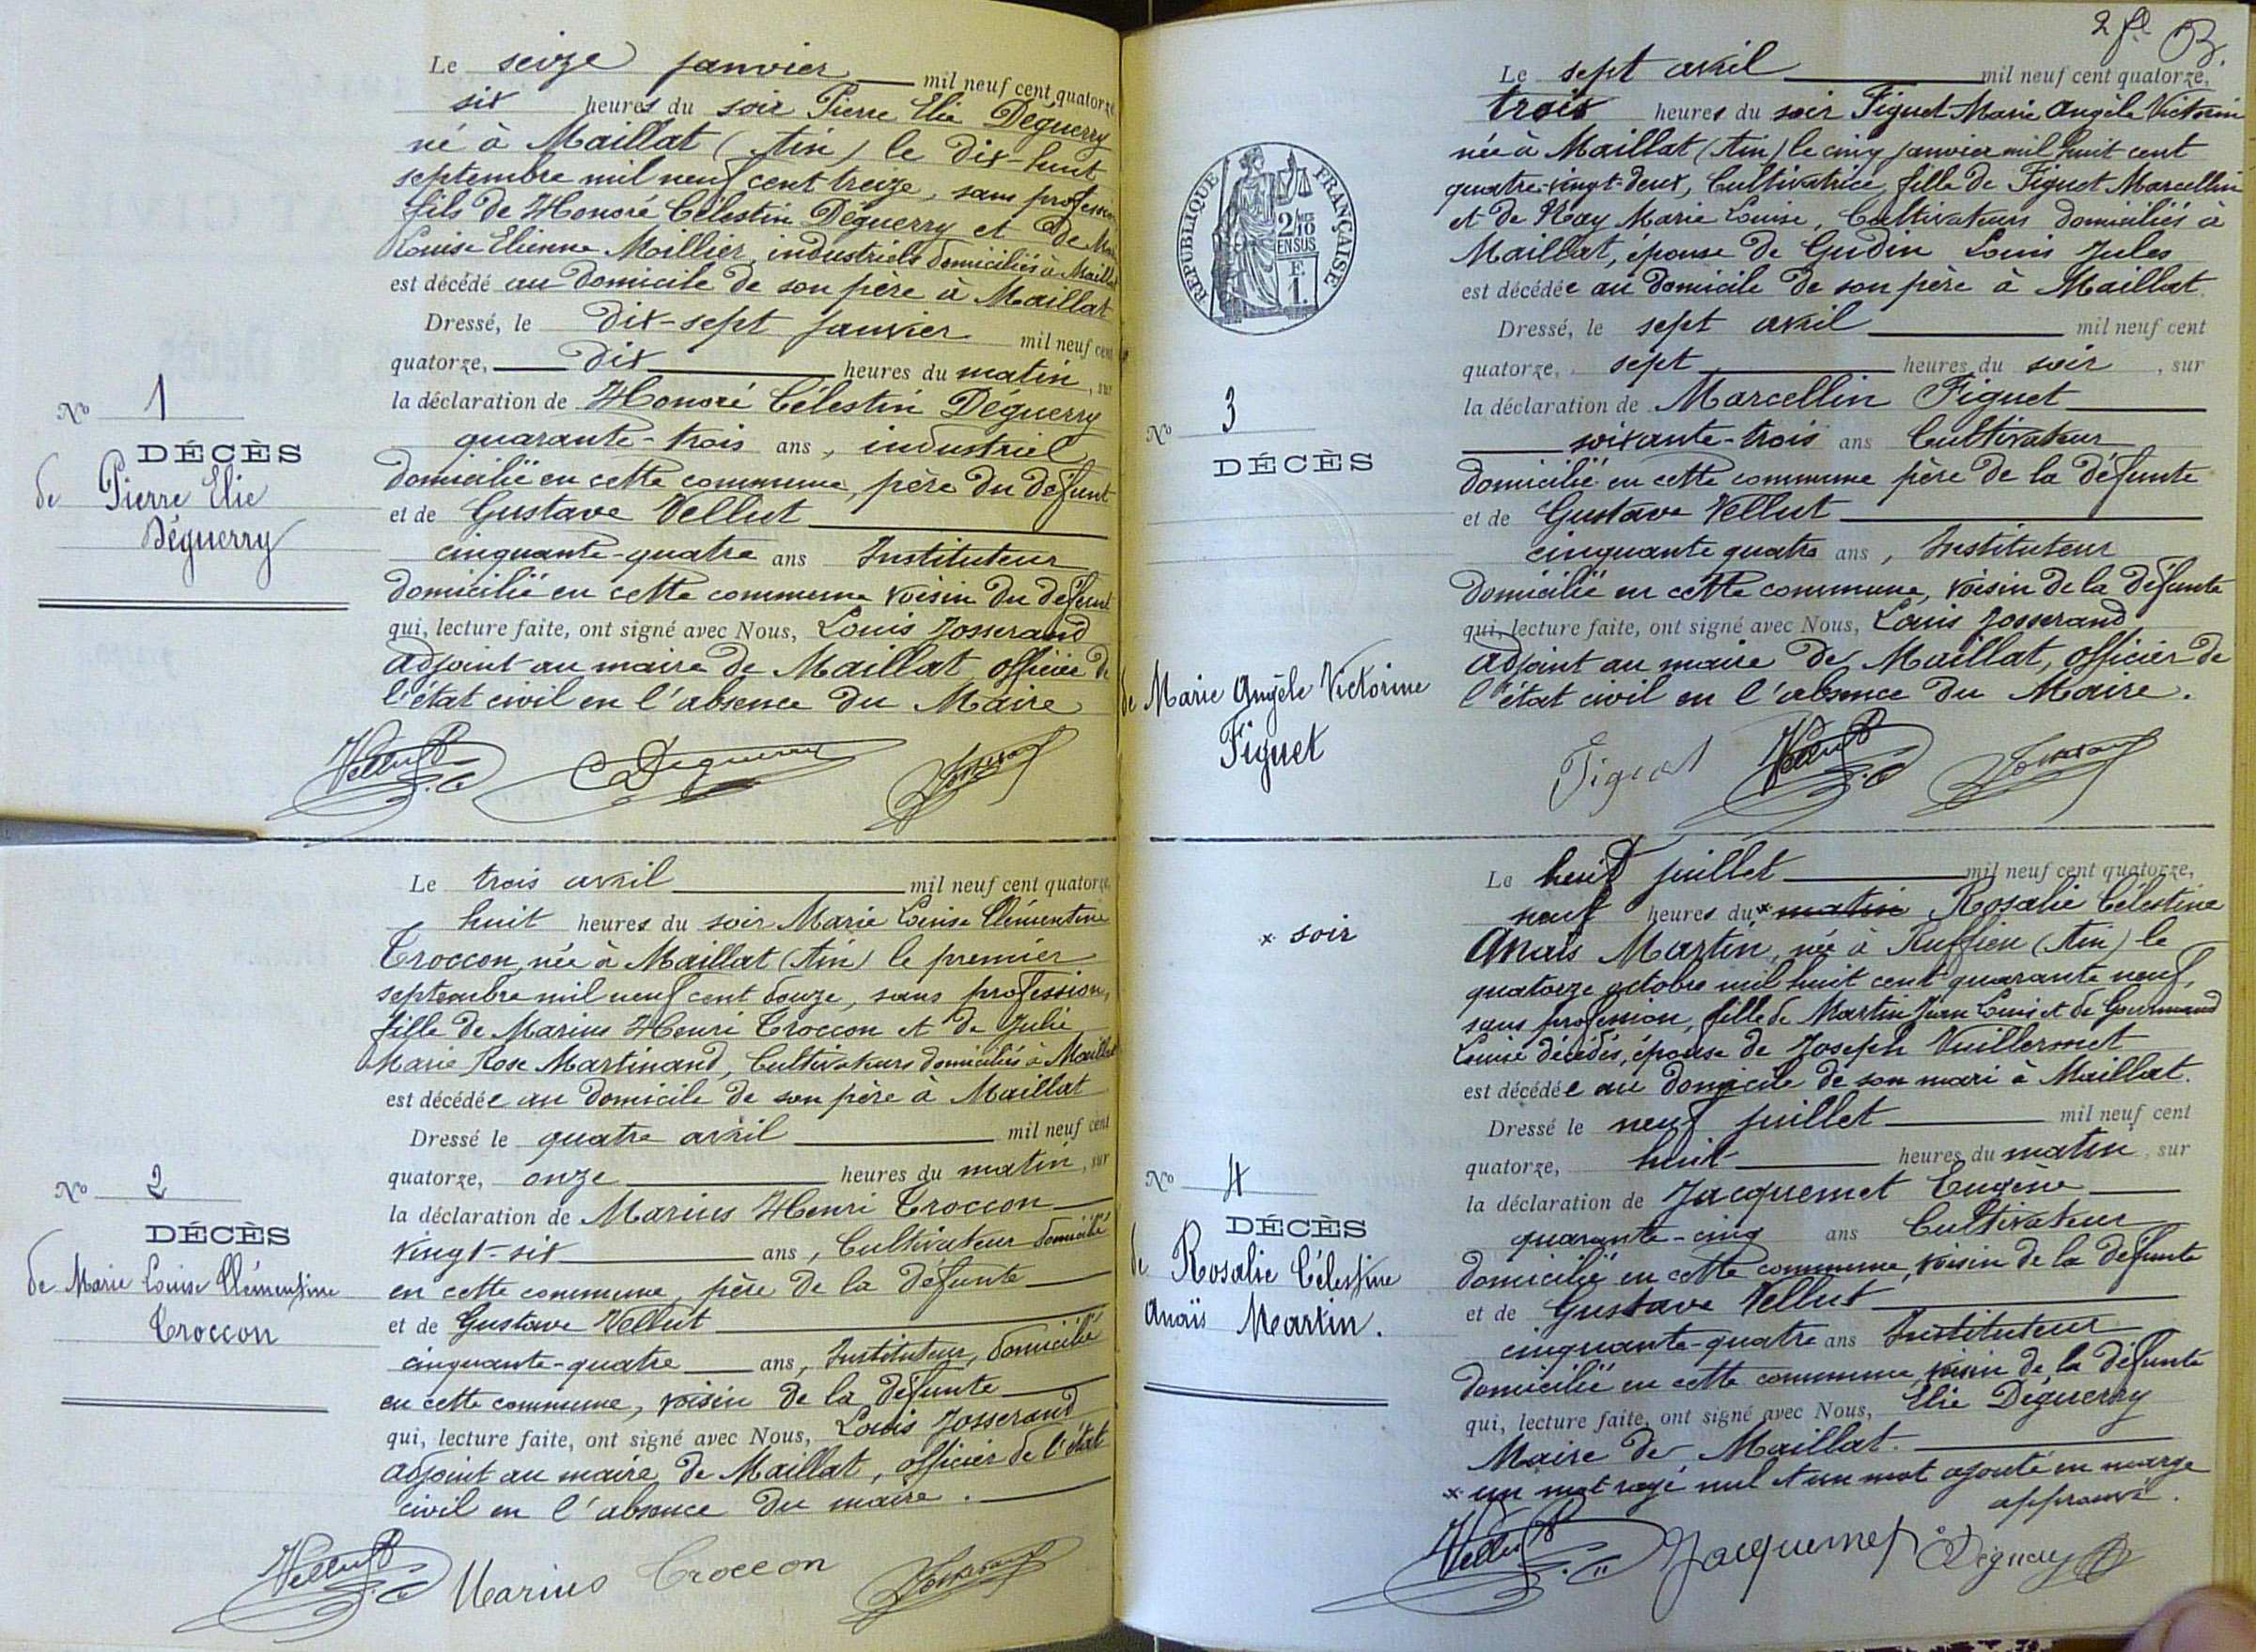 Le seize janvier mil neuf cent quatorze
six heures du soir Pierre Elie Déguerry
né à Maillat (Ain) le dix-huit
septembre mil neuf cent treize, sans profession
fils de Honoré Célestin Déguerry et de
Louise Etienne Moillier, industriels domiciliés à Maillat
est décédé au domicile de son père à Maillat
Dressé, le dix-sept janvier mil neuf cent
quatorze, dix heures du matin, sur
No 1
la déclaration de Honoré Célestin Déguerry
quarante-trois ans, industriel
DÉCÈS
de Pierre Elie
Déguerry
domicilié en cette commune, père du défunt
et de Gustave Vellut
cinquante-quatre ans Instituteur
domicilié en cette commune voisin du défunt
qui, lecture faite, ont signé avec Nous, Louis Josserand
adjoint au maire de Maillat officier de
l'état civil en l'absence du Maire
Vellut Déguerry Josserand
Le trois avril mil neuf cent quatorze,
huit heures du soir Marie Louise Clémentine
Croccon, née à Maillat (Ain) le premier
septembre mil neuf cent douze, sans profession,
fille de Marius Henri Croccon et de Julie
Marie Rose Martinand, Cultivateurs domiciliés à Maillat
est décédée au domicile de son père à Maillat
Dressé le quatre avril mil neuf cent
quatorze, onze heures du matin, sur
No 2
la déclaration de Marius Henri Croccon
vingt-six ans, Cultivateur domicilié
DÉCÈS
de Marie Louise Clémentine
Croccon
en cette commune, père de la défunte
et de Gustave Vellut
cinquante-quatre ans, Instituteur, domicilié
en cette commune, voisin de la défunte
qui, lecture faite, ont signé avec Nous, Louis Josserand
adjoint au maire de Maillat, officier de l'état
civil en l'absence du maire.
Vellut Marius Croccon Josserand
2 fl B.
Le sept avril mil neuf cent quatorze,
trois heures du soir Figuet Marie Angèle Victorine
née à Maillat (Ain) le cinq janvier mil huit cent
quatre-vingt-deux, Cultivatrice, fille de Figuet Marcellin
et de Ray Marie Louise, Cultivateurs domiciliés à
Maillat, épouse de Gudin Louis Jules
est décédée au domicile de son père à Maillat.
RÉPUBLIQUE FRANÇAISE
2/10
EN SUS
F.
1.
Dressé, le sept avril mil neuf cent
quatorze, sept heures du soir, sur
No 3
DÉCÈS
de Marie Angèle Victorine
Figuet
la déclaration de Marcellin Figuet
soixante-trois ans Cultivateur
domicilié en cette commune père de la défunte
et de Gustave Vellut
cinquante quatre ans, Instituteur
domicilié en cette commune, voisin de la défunte
qui, lecture faite, ont signé avec Nous, Louis Josserand
adjoint au maire de Maillat, officier de
l'état civil en l'absence du Maire.
Figuet Vellut Josserand
Le huit juillet mil neuf cent quatorze,
neuf heures du x matin Rosalie Célestine
x soir
Anaïs Martin, née à Ruffieu (Ain) le
quatorze octobre mil huit cent quarante neuf,
sans profession, fille de Martin Jean Louis et de Gourmand
Louise décédés, épouse de Joseph Vuillermet
est décédée au domicile de son mari à Maillat.
Dressé le neuf juillet mil neuf cent
quatorze, huit heures du matin, sur
No 4
DÉCÈS
de Rosalie Célestine
Anaïs Martin.
la déclaration de Jacquemet Eugène
quarante-cinq ans Cultivateur
domicilié en cette commune, voisin de la défunte
et de Gustave Vellut
cinquante-quatre ans Instituteur
domicilié en cette commune voisin de la défunte
qui, lecture faite, ont signé avec Nous, Elie Déguerry
Maire de Maillat.
x un mot rayé nul et un mot ajouté en marge
approuvé.
Vellut Jacquemet Déguerry